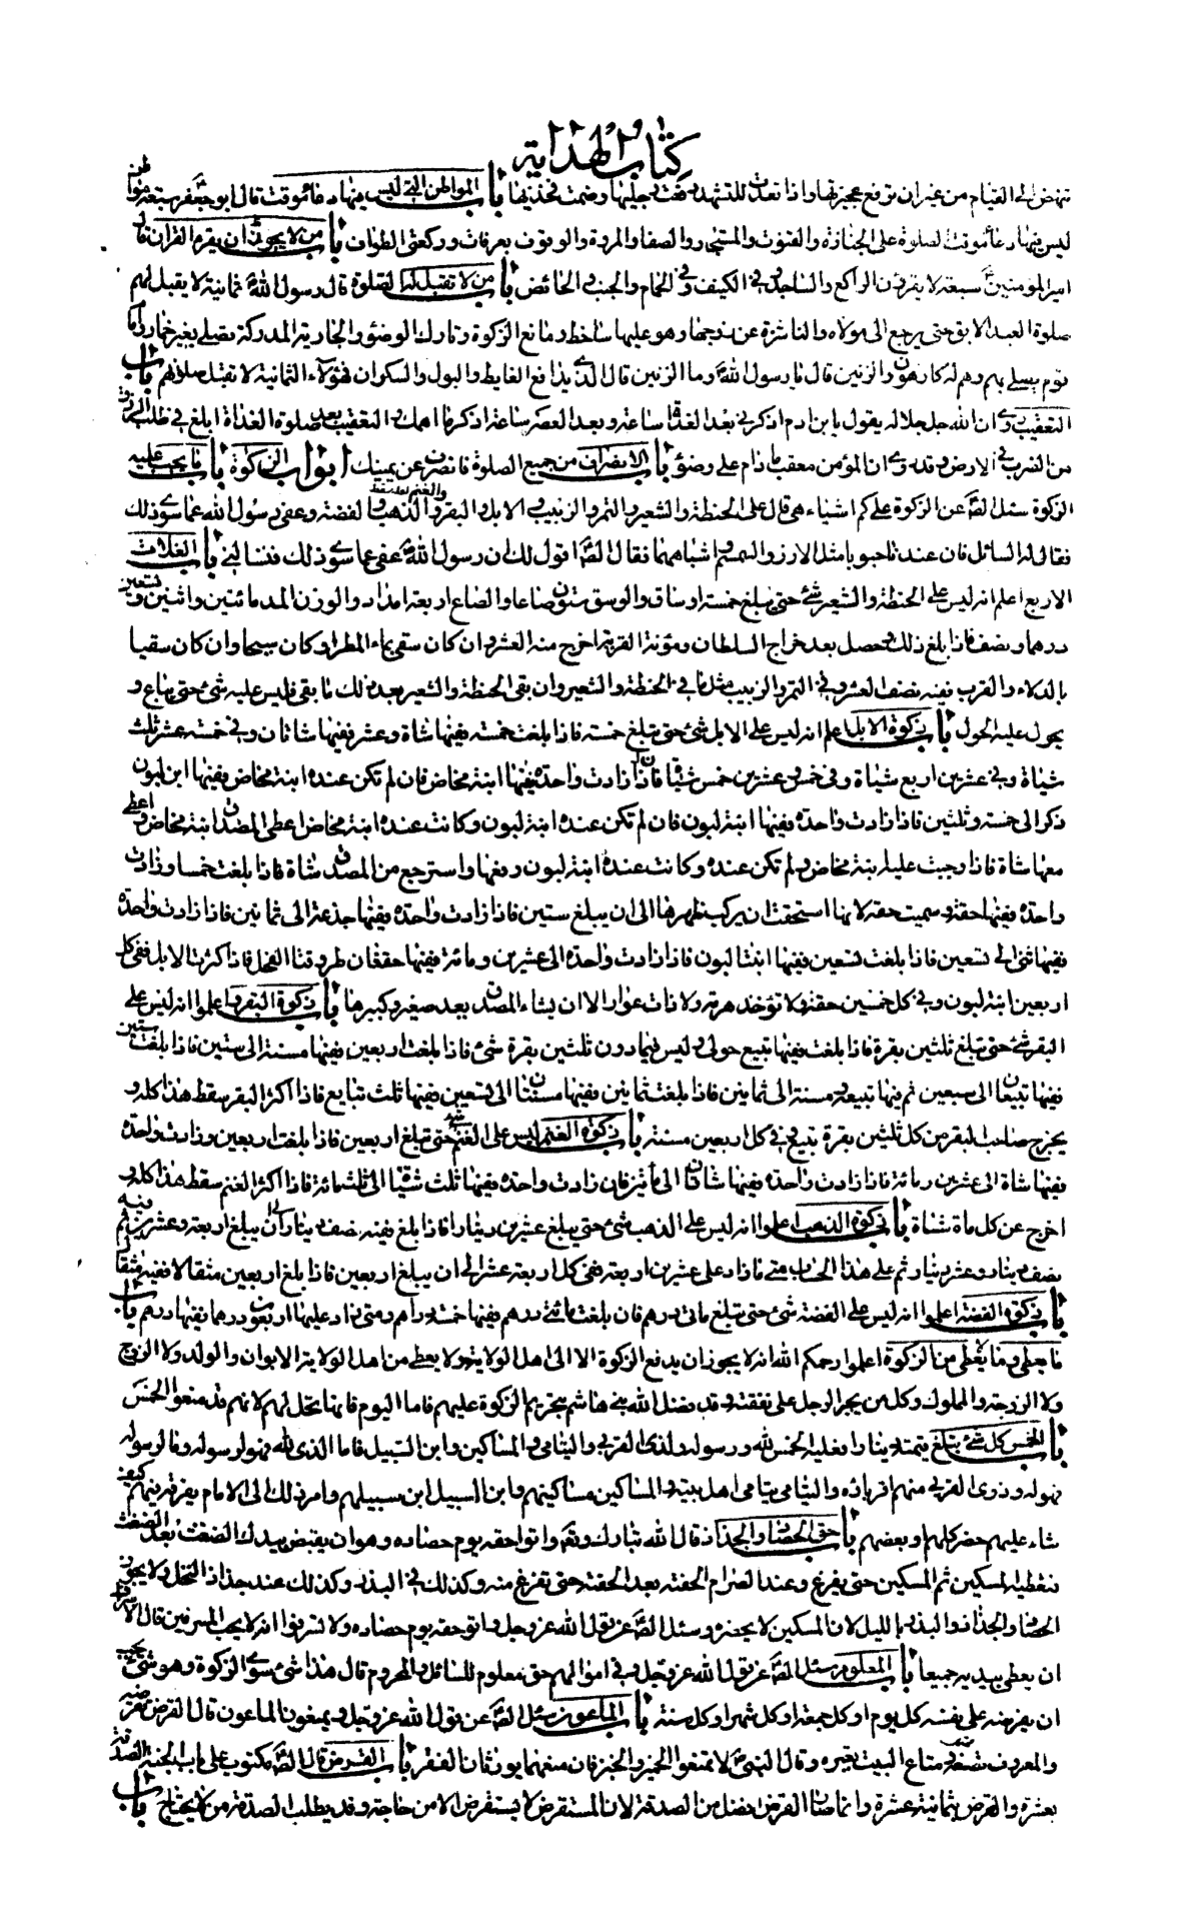 كتاب الهداية
تنهض الى القيام من غير ان ترفع عجيزتها واذا قعدت للتشهد رفعت رجليها وضمت فخذيها باب المواطن التى ليس فيها دعاء موقت قال ابو جعفر سبعة مواطن
ليس فيها دعاء موقت الصلوة على الجنازة والقنوت والمستجار والصفا والمروة والوقوف بعرفات وركعتى الطواف باب من لا يجوز ان يقرء القران قال
امير المومنين سبعة لا يقرؤن الراكع والساجد وفى الكنيف وفى الحمام والجنب والحائض باب من لا تقبل له الصلوة قال رسول الله ثمانية لا يقبل لهم
صلوة العبد الابق حتى يرجع الى مولاه والناشزة عن زوجها وهو عليها ساخط ومانع الزكوة وتارك الوضوء والجارية المدركة تصلى بغير خمار وامام
قوم يصلى بهم وهم له كارهون والزنين قال يا رسول الله وما الزنين قال الذى يدافع الغايط والبول والسكران فهؤلاء الثمانية لا تقبل صلاتهم باب
التعقيب روى ان الله جل جلاله يقول يا بن ادم اذكرنى بعد الغداة ساعة وبعد العصر ساعة اكفك ما اهمك والتعقيب بعد صلوة الغداة ابلغ فى طلب الرزق
من الضرب فى الارض وقد روى ان المؤمن معقب ما دام على وضوء باب الانصراف من جميع الصلوة فانصرف عن يمينك ابواب الزكوة باب ما يجب عليه
الزكوة سئل الص عن الزكوة على كم اشياء هى قال على الحنطة والشعير والتمر والزبيب والابل والبقر والغنم والذهب والفضة وعفى رسول الله عما سوى ذلك
فقال له السائل فان عندنا حبوبا مثل الارز والسمسم واشباههما فقال الص اقول لك ان رسول الله عفى عما سوى ذلك فتسالنى باب الغلات
الاربع اعلم انه ليس على الحنطة والشعير شئ حتى تبلغ خمسة اوساق والوسق ستون صاعا والصاع اربعة امداد والوزن المد مائتين واثنين وتسعين
درهما ونصف فاذا بلغ ذلك وحصل بعد خراج السلطان ومؤنة القرية اخرج منه العشر ان كان سقى بماء المطر او كان سيحا وان كان سقيا
بالدلاء والقرب ففيه نصف العشر وفى التمر والزبيب مثل ما فى الحنطة والشعير وان بقى الحنطة والشعير بعد ذلك ما بقى فليس عليه شئ حتى يباع و
يحول عليه الحول باب زكوة الابل اعلم انه ليس على الابل شئ حتى تبلغ خمسة فاذا بلغت خمسة ففيها شاة وعشر ففيها شاتان وفى خمسة عشر ثلث
شياة وفى عشرين اربع شياة وفى خمس وعشرين خمس شياة فاذا زادت واحدة ففيها ابنة مخاض فان لم تكن عنده ابنة مخاض ففيها ابن لبون
ذكر الى خمسة وثلثين فاذا زادت واحدة ففيها ابنة لبون فان لم تكن عنده ابنة لبون وكانت عنده ابنة مخاض اعطى المصدق ابنة مخاض واعطى
معها شاة فاذا وجبت عليه ابنة مخاض ولم تكن عنده وكانت عنده ابنة لبون دفعها واسترجع من المصدق شاة فاذا بلغت خمسا وزادت
واحدة ففيها حقة وسميت حقة لانها استحقت ان يركب ظهرها الى ان يبلغ ستين فاذا زادت واحدة ففيها جذعة الى ثمانين فاذا زادت واحدة
ففيها ثنى الى تسعين فاذا بلغت تسعين ففيها ابنتا لبون فاذا زادت واحدة الى عشرين ومائة ففيها حقتان طروقتا الفحل فاذا كثرت الابل ففى كل
اربعين ابنة لبون وفى كل خمسين حقة ولا تؤخذ هرمة ولا ذات عوار الا ان يشاء المصدق بعد صغيرها وكبيرها باب زكوة البقر اعلموا انه ليس على
البقر شئ حتى تبلغ ثلثين بقرة فاذا بلغت ففيها تبيع حولى وليس فيما دون ثلثين بقرة شئ فاذا بلغت اربعين ففيها مسنة الى ستين فاذا بلغت ستين
ففيها تبيعان الى سبعين ثم فيها تبيعة ومسنة الى ثمانين فاذا بلغت ثمانين ففيها مسنتان الى تسعين ففيها ثلث تبايع فاذا كثر البقر سقط هذا كله و
يخرج صاحب البقر من كل ثلثين بقرة تبيع وفى كل اربعين مسنة باب زكوة الغنم ليس على الغنم شئ حتى تبلغ اربعين فاذا بلغت اربعين وزادت واحدة
ففيها شاة الى عشرين ومائة فاذا زادت واحدة ففيها شاتان الى مأتين فان زادت واحدة ففيها ثلث شياة الى ثلثمائة فاذا كثر الغنم سقط هذا كله و
اخرج عن كل ماة شاة باب زكوة الذهب اعلموا انه ليس على الذهب شئ حتى يبلغ عشرين دينارا فاذا بلغ ففيه نصف دينار الى ان يبلغ اربعة وعشرين ففيه
نصف دينار وعشر دينار ثم على هذا الحساب متى ما زاد على عشرين اربعة ففى كل اربعة عشر الى ان يبلغ اربعين فاذا بلغ اربعين مثقالا ففيه مثقال
باب زكوة الفضة اعلموا انه ليس على الفضة شئ حتى تبلغ مأتى درهم فان بلغت مائتى درهم ففيها خمسة دراهم ومتى زاد عليها اربعون درهما ففيها درهم باب
ما يعطى وما يعطى من الزكوة اعلموا رحمكم الله انه لا يجوز ان يدفع الزكوة الا الى اهل الولاية ولا يعطى من اهل الولاية الابوان والولد ولا الزوج
ولا الزوجة والمملوك وكل من يجبر الرجل على نفقته وقد فضل الله بنى هاشم بتحريم الزكوة عليهم فاما اليوم فانها تحل لهم لانهم قد منعوا الخمس
باب الخمس كل شئ يبلغ قيمته دينارا ففيه الخمس لله ورسوله ولذى القربى واليتامى والمساكين وابن السبيل فاما الذى لله فهو لرسوله وما لرسوله
فهو له وذوى القربى منهم اقرباؤه واليتامى يتامى اهل بيته والمساكين مساكينهم وابن السبيل ابن سبيلهم وامر ذلك الى الامام يفرقه فيهم كيف
شاء عليهم حضر كلهم او بعضهم باب حق الحصاد والجذاذ قال الله تبارك وتعالى واتوا حقه يوم حصاده وهو ان يقبض بيدك الضغث بعد الضغث
فتعطيه المسكين ثم المسكين حتى يفرغ وعند الصرام الحفنة بعد الحفنة حتى تفرغ منه وكذلك فى البذر وكذلك عند جذاذ النخل ولا يجوز
الحصاد والجذاذ والبذر بالليل لان المسكين لا يحضره وسئل الص عن قول الله عز وجل واتو حقه يوم حصاده ولا تسرفوا انه لا يحب المسرفين قال الاسراف
ان يعطى بيديه جميعا باب المعلوم سئل الص عن قول الله عز وجل وفى اموالهم حق معلوم للسائل والمحروم قال هذا شئ سوى الزكوة وهو شئ يجب
ان يفرضه على نفسه كل يوم او كل جمعة او كل شهر او كل سنة باب الماعون سئل الص عن قول الله عز وجل ويمنعون الماعون قال القرض تقرضه
والمعروف تصنعه ومتاع البيت تعيره وقال النبى لا تمنعوا الخمير والخبز فان منعهما يورثان الفقر باب القرض قال الص مكتوب على باب الجنة الصدقة
بعشرة والقرض بثمانية عشرة وانما صار القرض افضل من الصدقة لان المستقرض لا يستقرض الا من حاجة وقد يطلب الصدقة من لا يحتاج باب